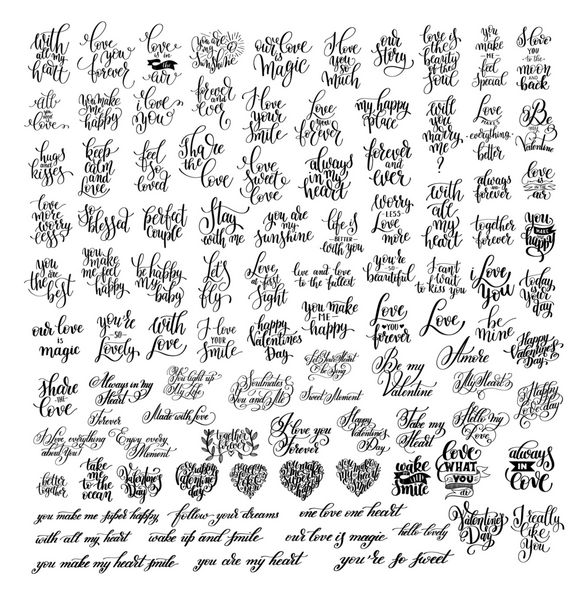 with
all my
heart
love
you
forever
love
is in
the
air
you are
my
Sunshine
our love
is
Magic
I love
you so
Much
our
Story
love is
the
beauty
of the
Soul
you
make
me
feel
Special
I love
you
to the
moon
AND
back
All
you need
is
Love
You
make me
happy
i love
you
forever
and
ever
I love
your
smile
Love
you
forever
my happy
place
will
you
marry
me
?
Love
makes
everything
better
Be
my
Valentine
hugs
and
kisses
keep
calm
and
love
feel
so
loved
Share
the
love
Love
sweet
love
always
in my
heart
forever
and
ever
with
all
my
heart
always
and
forever
love
is
in the
air
love
more
worry
less
So
blessed
perfect
couple
Stay
with me
you are
my
sunshine
life is
BETTER
with you
Worry
LESS
Love
more
together
forever
you
MAKE ME
happy
you
are
the
best
you
make
me feel
so
happy
be happy
my
baby
let's
fly
Love
at first
Sight
live and love
to the fullest
you're
SO
beautiful
I can't
wait
to kiss you
i love
You
today
is
your
day
our love
is
magic
you're
SO
Lovely
with
Love
I love
YOUR
smile
happy
Valentines
Day
you make
ME
happy
Love
YOU
forever
Love
be
mine
Happy
Valentine's
Day
Share
THE
Love
Always in my
Heart
Forever
You light up
My Life
Made with Love
Soulmates
You and Me
Sweet Moment
Be my
Valentine
Amore
My Heart
Happy
Love day
I Love everything
about You!
Enjoy every
Moment
together
forever
I love you
Forever
Happy
Valentines
Day
Take my
Heart
Hello my
Love
better
together
take
me
to the
ocean
Valentine's
Day
happy
valentine's
day
wake
up and
smile
love
WHAT
YOU
do
always
IN
love
you make me super happy
follow your dreams
one love one heart
Valentine's
Day
I really
Like
You
with all my heart
wake up and smile
our love is magic
hello lovely
you make my heart smile
you are my heart
you're so sweet